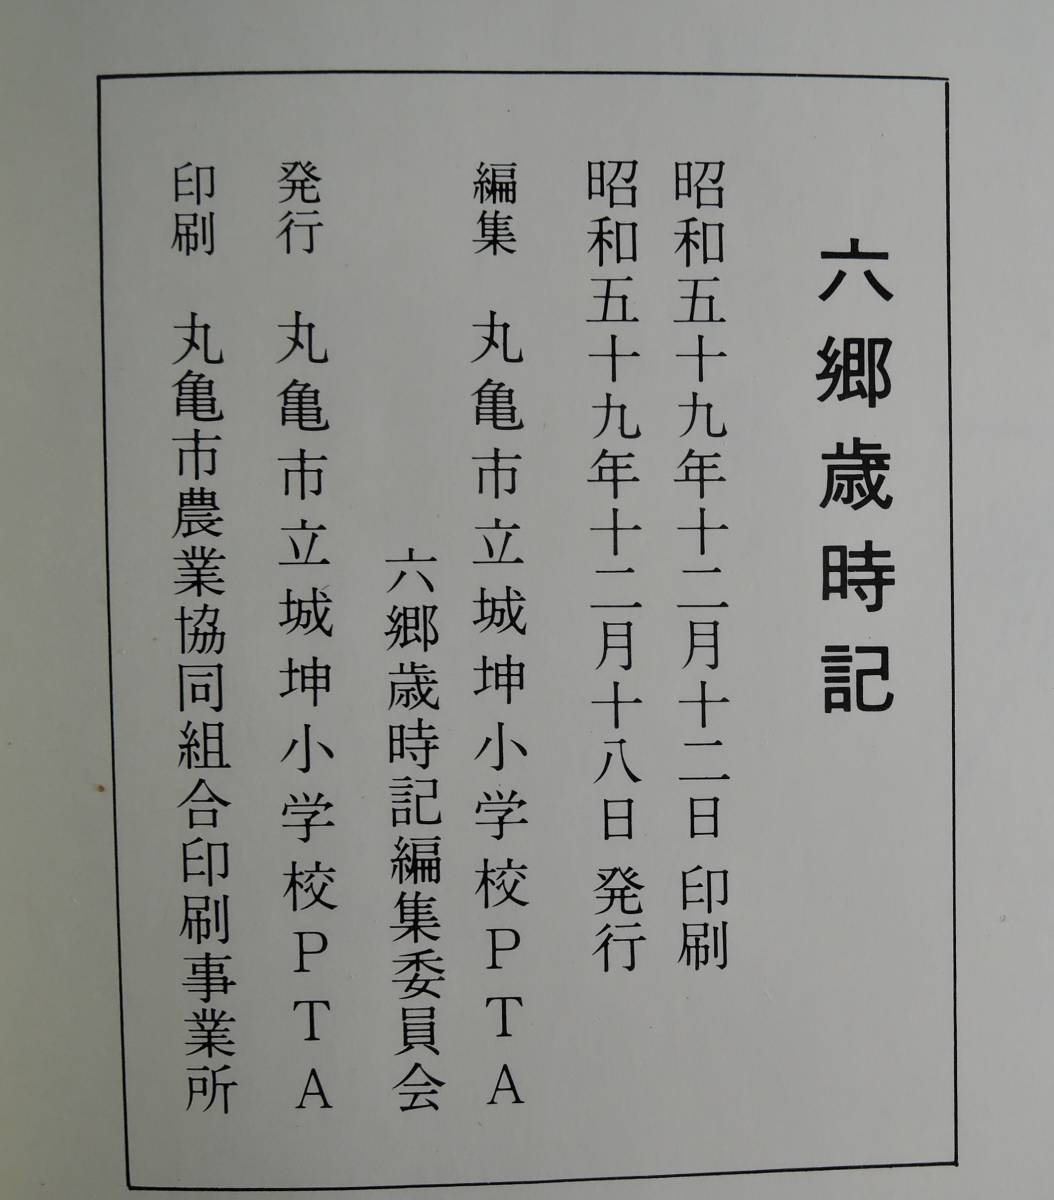 六郷歳時記
昭和五十九年十二月十二日 印刷
昭和五十九年十二月十八日 発行
編集 丸亀市立城坤小学校PTA
六郷歳時記編集委員会
発行 丸亀市立城坤小学校PTA
印刷 丸亀市農業協同組合印刷事業所